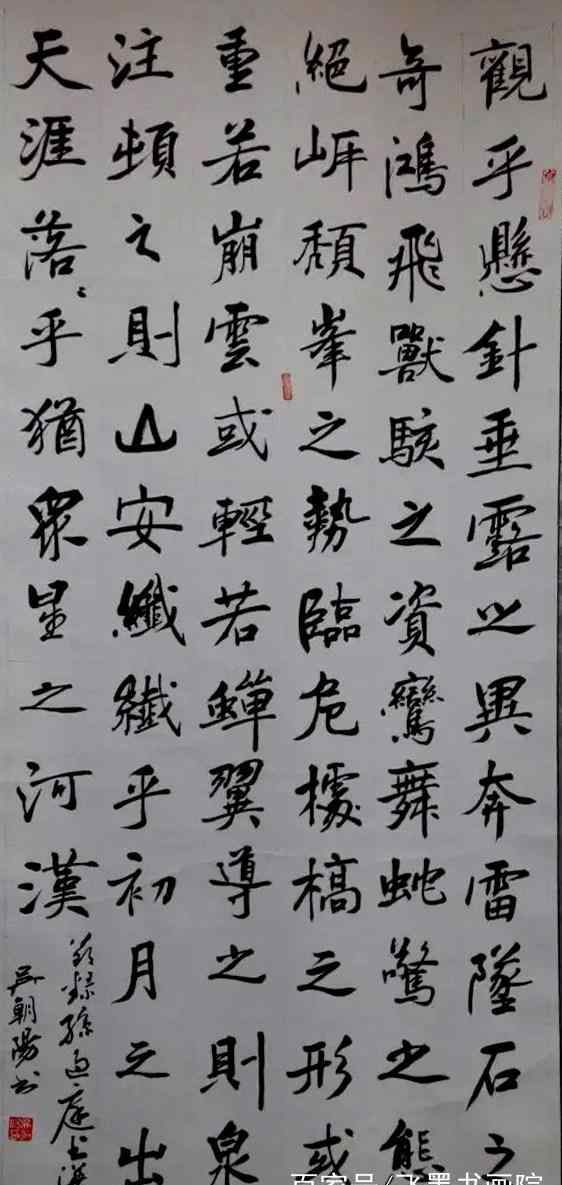 觀乎懸針垂露之異奔雷墜石之
奇鴻飛獸駭之資鸞舞蛇驚之態
絕岸頹峯之勢臨危據槁之形或
重若崩雲或輕若蟬翼導之則泉
注頓之則山安纖纖乎初月之出
天涯落〻乎猶眾星之河漢
節錄孫過庭書譜
吳朝陽書
百家号/飞墨书画院